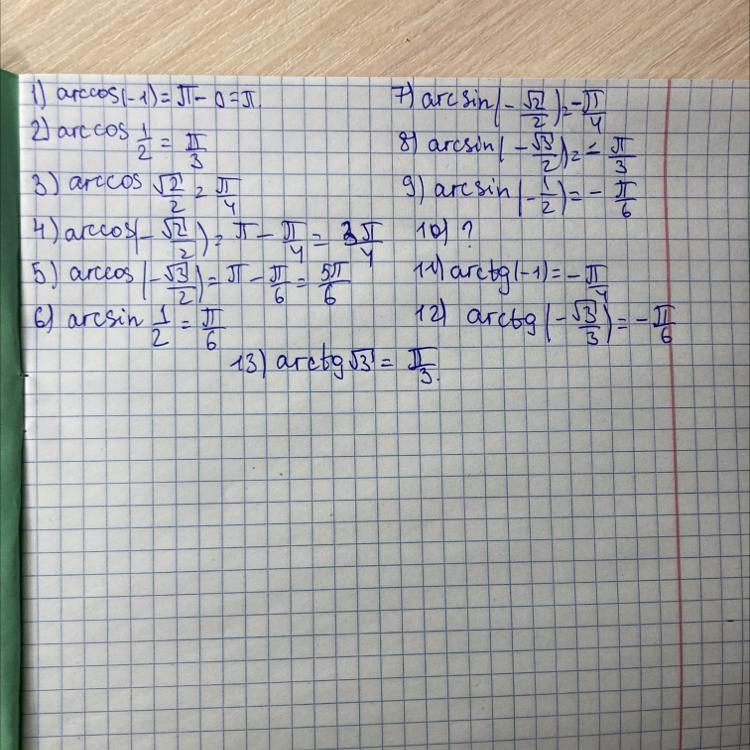 1) arccos(-1) = π - 0 = π.
2) arccos 1/2 = π/3
3) arccos √2/2 = π/4
4) arccos(-√2/2) = π - π/4 = 3π/4
5) arccos(-√3/2) = π - π/6 = 5π/6
6) arcsin 1/2 = π/6
7) arcsin(-√2/2) = -π/4
8) arcsin(-√3/2) = -π/3
9) arcsin(-1/2) = -π/6
10) ?
11) arctg(-1) = -π/4
12) arctg(-√3/3) = -π/6
13) arctg√3 = π/3.